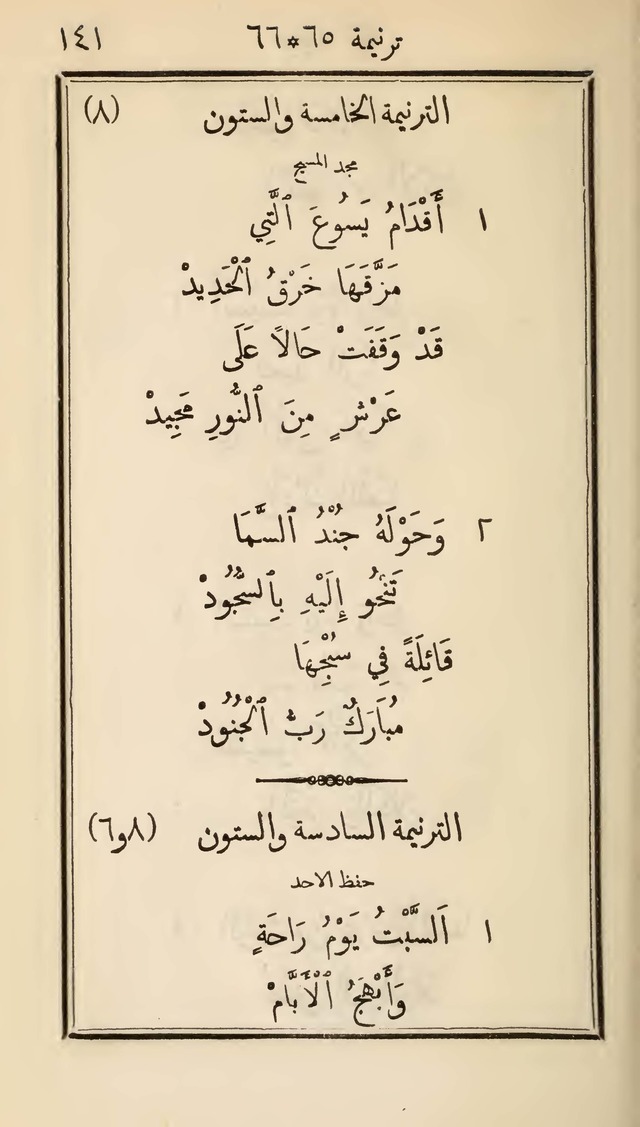 ترنيمة ٦٥*٦٦ ١٤١
الترنيمة الخامسة والستون (٨)
مجد المسيح
١ أَقْدَامُ يَسُوعَ ٱلَّتِي
مَزَّقَهَا خَرْقُ ٱلْحَدِيدْ
قَدْ وَقَفَتْ حَالًا عَلَى
عَرْشٍ مِنَ ٱلنُّورِ مَجِيدْ
٢ وَحَوْلَهُ جُنْدُ ٱلسَّمَا
تَنْحُو إِلَيْهِ بِٱلسُّجُودْ
قَائِلَةً فِي سُبْحِهَا
مُبَارَكٌ رَبُّ ٱلْجُنُودْ
الترنيمة السادسة والستون (٨و٦)
حفظ الاحد
١ اَلسَّبْتُ يَوْمُ رَاحَةٍ
وَأَبْهَجُ ٱلْأَيَّامْ